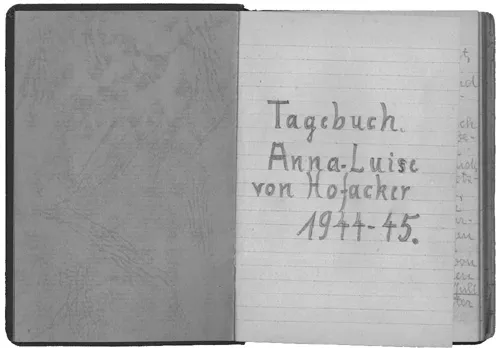 Tagebuch.
Anna-Luise
von Hofacker
1944-45.